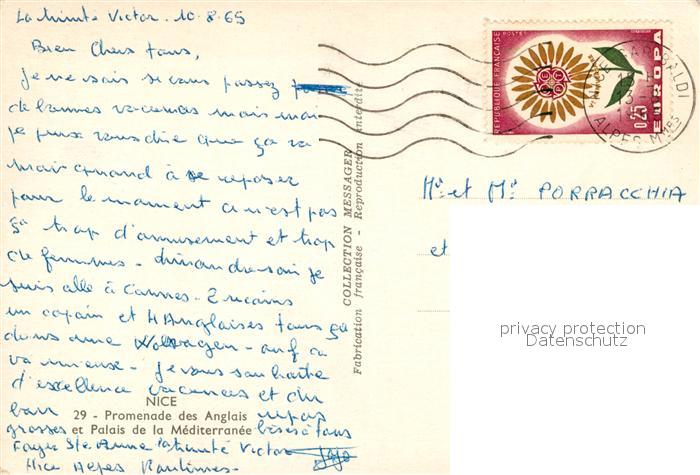 La trinité Victor. 10.8.65
Bien Chers tous,
je ne sais si vous passez
de bonnes vacances mais moi
je peux vous dire que ça va
mais quand à se reposer
pour le moment ce n'est pas
ça trop d'amusement et trop
de femmes - dimanche soir je
suis allé à Cannes - 2 
un copain et 4 Anglaises tous ça
dans une Wolsvagen - ouf ça
va mieux - je vous souhaite
d'excellence vacances et du
bon repos
grosses bises à tous
Foyer Ste Anne la trinité Victor Jojo
Nice Alpes Maritimes.
NICE
29 - Promenade des Anglais
et Palais de la Méditerranée
COLLECTION MESSAGER
Fabrication française - Reproduction interdite
REPUBLIQUE FRANÇAISE
POSTES
EUROPA
0,25
GARIBALDI
ALPES Mmes
Mr et Me PORRACCHIA
et
privacy protection
Datenschutz